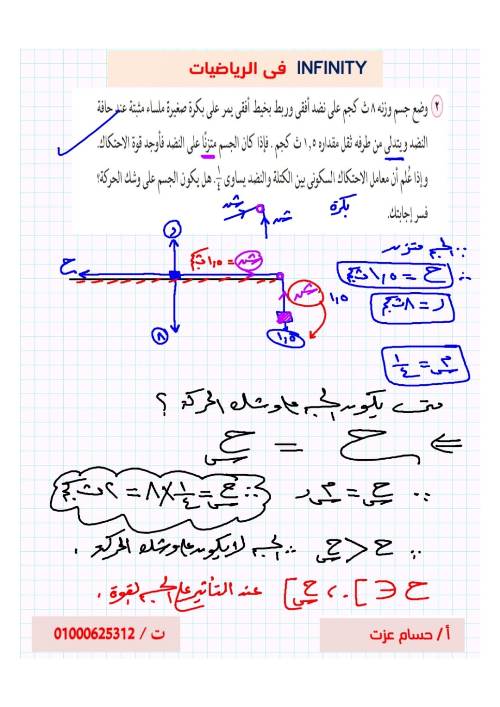 INFINITY فى الرياضيات
٢ وضع جسم وزنه ٨ ث كجم على نضد أفقى وربط بخيط أفقى يمر على بكرة صغيرة ملساء مثبتة عند حافة
النضد ويتدلى من طرفه ثقل مقداره ١,٥ ث كجم . فإذا كان الجسم متزنًا على النضد فأوجد قوة الاحتكاك.
وإذا عُلم أن معامل الاحتكاك السكونى بين الكتلة والنضد يساوى ١/٤. هل يكون الجسم على وشك الحركة؟
فسر إجابتك.
بكرة
شد
شد
∵ الجسم متزن
ر
ح
شد = ١,٥ ث كجم
∴ ح = ١,٥ ث كجم
شد
١,٥
ر = ٨ ث كجم
٨
١,٥
م س = ١/٤
متى يكون الجسم على وشك الحركة ؟
⇐ ح = ح س
∵ ح س = م س ر ∴ ح س = ١/٤ × ٨ = ٢ ث كجم
∵ ح < ح س ∴ الجسم لا يكون على وشك الحركة .
ح ∈ ]٠ ، ح س] عند التأثير على الجسم بقوة .
أ / حسام عزت
ت / 01000625312